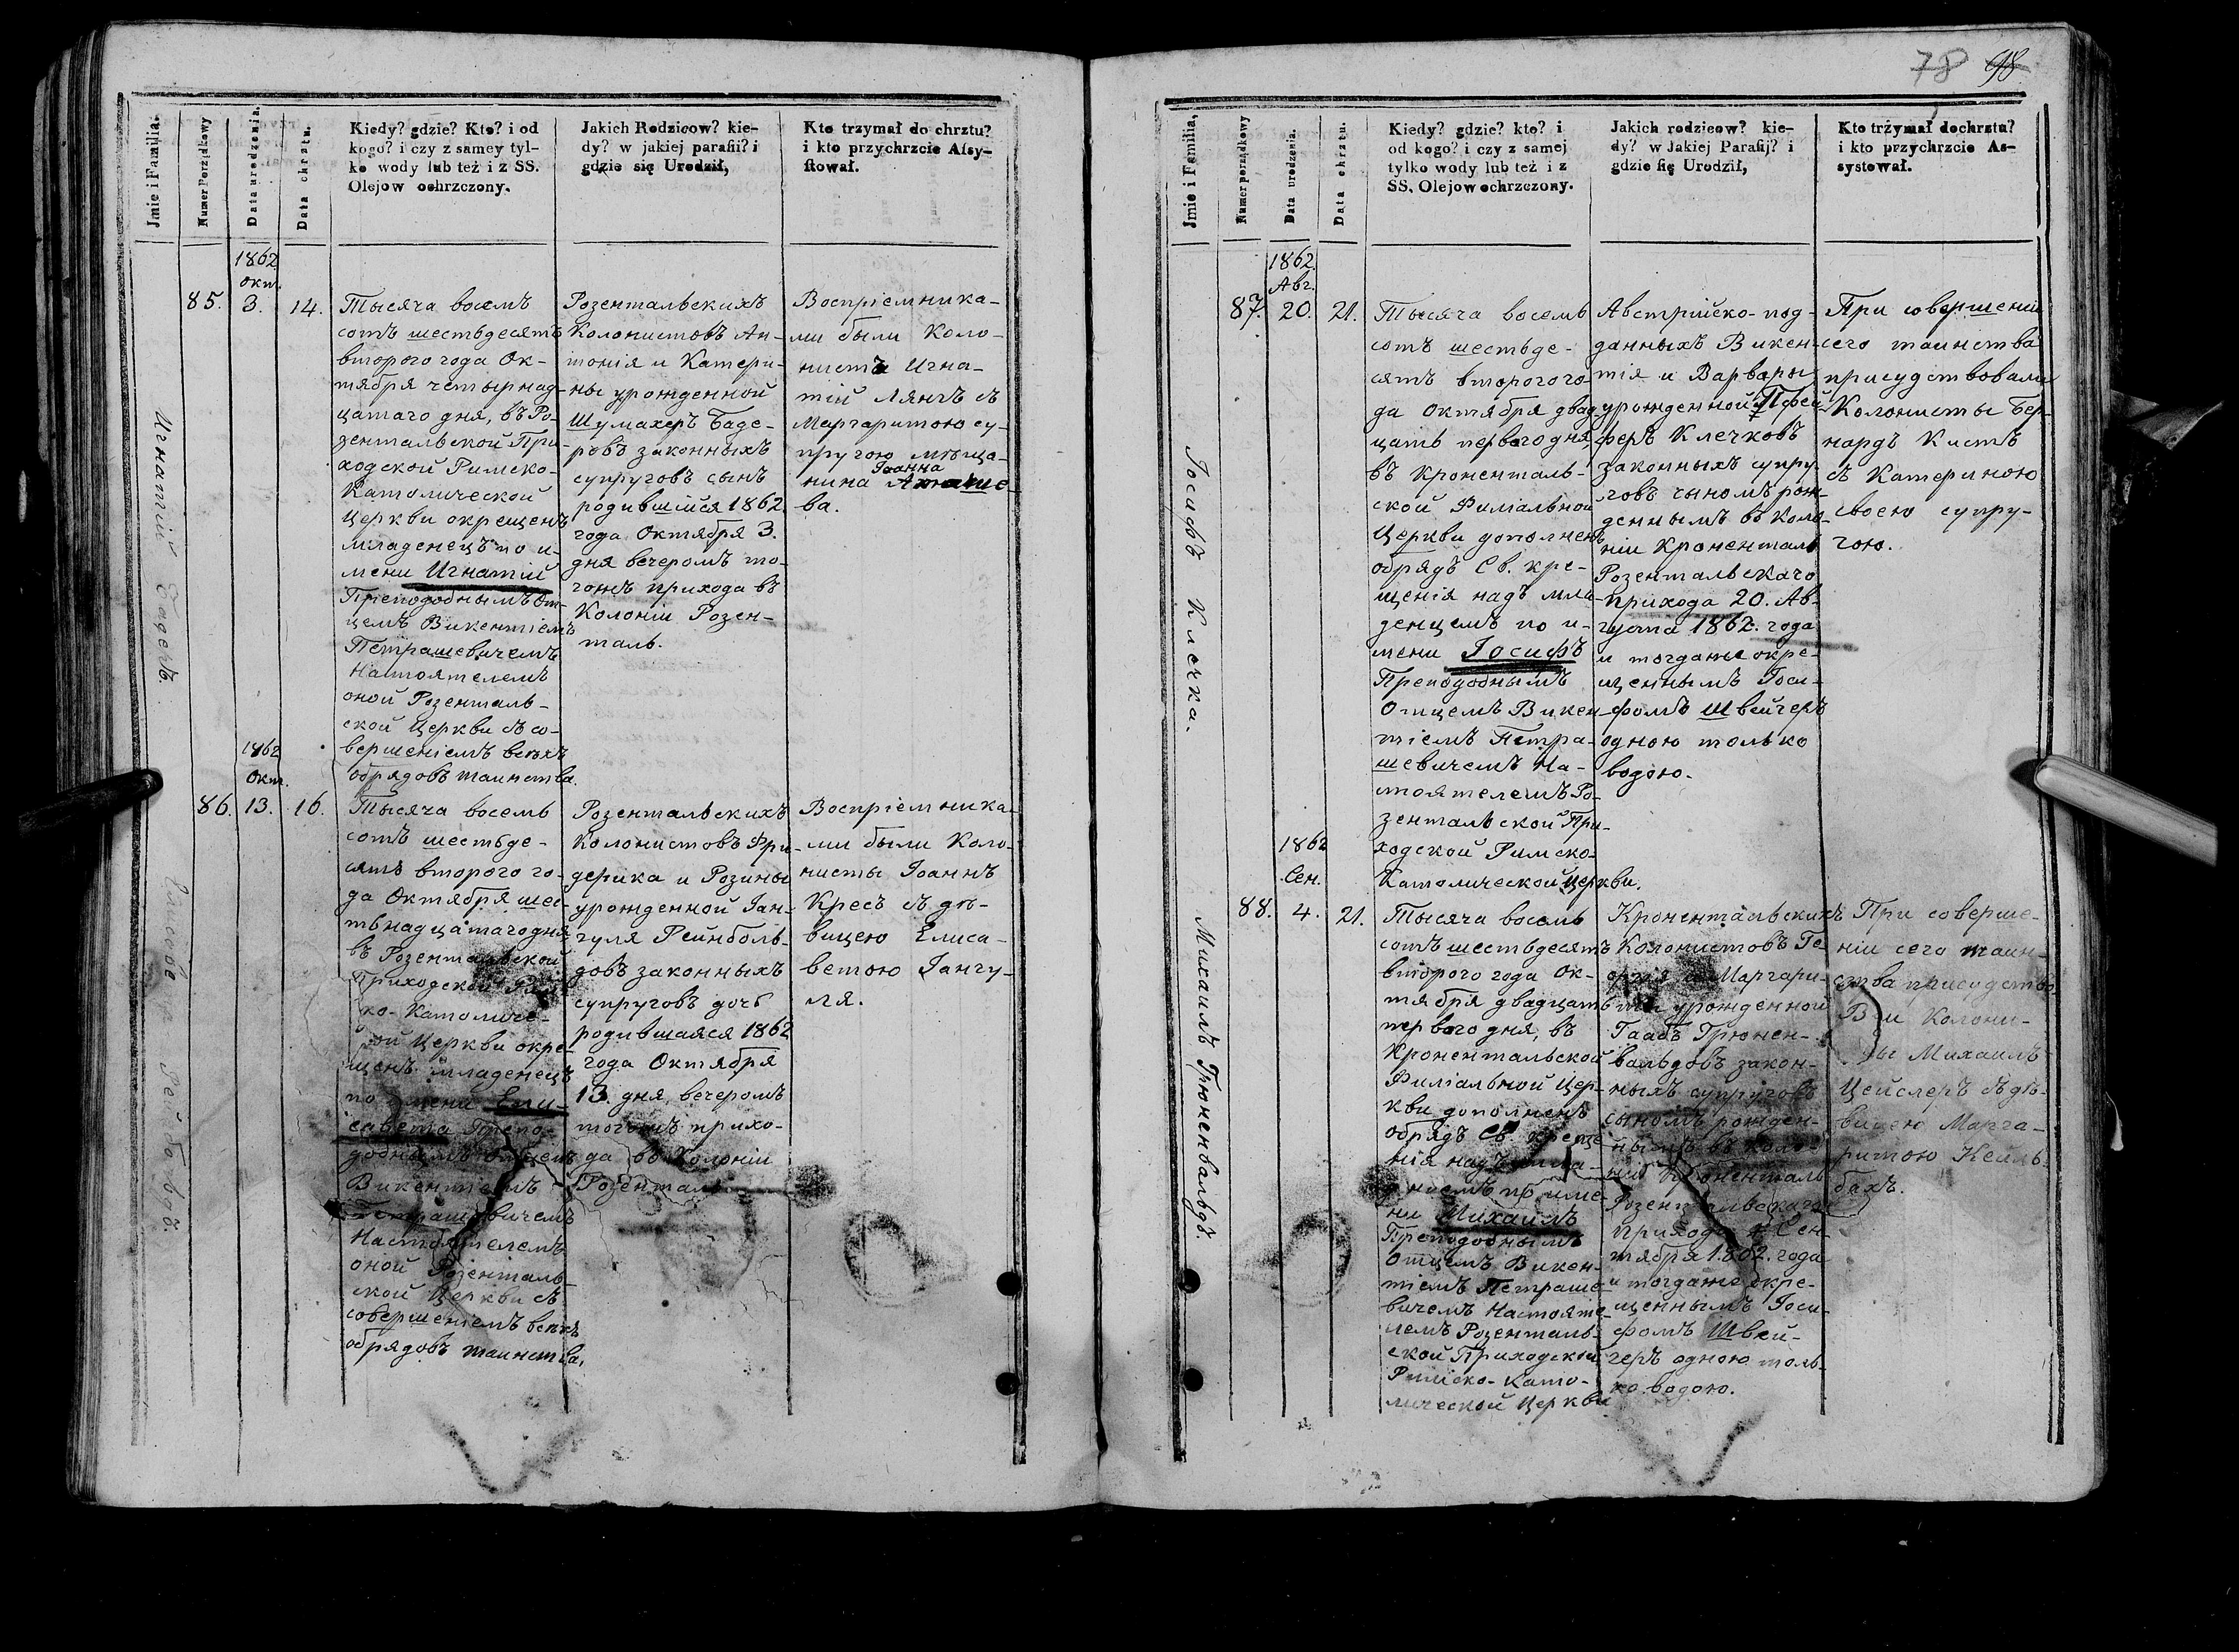 78 98
Jmie i Familia.
Numer Porządkowy
Data urodzenia.
Data chrztu.
Kiedy? gdzie? Kto? i od
kogo? i czy z samey tyl-
ko wody lub też i z SS.
Olejow ochrzczony.
Jakich Rodzicow? kie-
dy? w jakiej parafii? i
gdzie się Urodził,
Kto trzymał do chrztu?
i kto przychrzcie Assy-
stował.
Игнатій Бадеръ.
85.
1862
окт.
3.
14.
Тысяча восемъ
сотъ шестьдесятъ
втораго года Ок-
тября четырнад-
цатаго дня, въ Ро-
зентальской При-
ходской Римско-
Католической
Церкви окрещенъ
младенецъ по и-
мени Игнатій
Преподобнымъ От-
цемъ Викентіемъ
Петрашевичемъ
Настоятелемъ
оной Розенталь-
ской Церкви съ со-
вершеніемъ всѣхъ
обрядовъ таинства.
Розентальскихъ
Колонистовъ Ан-
тонія и Катери-
ны урожденной
Шумахеръ Баде-
ровъ законныхъ
супруговъ сынъ
родившійся 1862
года Октября 3.
дня вечеромъ то-
гожъ прихода въ
Колоніи Розен-
таль.
Воспріемника-
ми были Коло-
нистъ Игна-
тій Лянгъ съ
Маргаритою су-
пругою мѣща-
Іоанна
нина
ва.
86.
1862
Окт.
13.
16.
Тысяча восемь
сотъ шестьде-
сятъ второго го-
да Октября шес-
тьнадцатаго дня
въ Розентальской
Приходской
ко-Католиче-
ой Церкви окре-
щенъ младенецъ
по имени Ели-
савета Препо-
добнымъ Отцемъ
Викентіемъ
Петрашевичемъ
Настоятелемъ
оной Розенталь-
ской Церкви съ
совершеніемъ всѣхъ
обрядовъ таинства.
Розентальскихъ
Колонистовъ Фри-
дерика и Розины
урожденной Іан-
гуля Рейнболь-
довъ законныхъ
супруговъ дочь
родившаяся 1862
года Октября
13. дня, вечеромъ
тогожъ прихо-
да въ Колоніи
Розенталь
Воспріемника-
ми были Коло-
нисты Іоаннъ
Кресъ съ дѣ-
вицею Елиса-
ветою Іангу-
ля.
Jmie i Familia,
Numer porządkowy
Data urodzenia.
Data chrztu.
Kiedy? gdzie? kto? i
od kogo? i czy z samej
tylko wody lub też i z
SS. Olejow ochrzczony.
Jakich rodzicow? kie-
dy? w Jakiej Parafij? i
gdzie się Urodził,
Kto trżymał dochrztu?
i kto przychrzcie As-
systował.
Іосифъ Клечка.
87.
1862.
Авг.
20.
21.
Тысяча восемь
сотъ шестьде-
сятъ второго го-
да Октября двад-
цать перваго дня
въ Кроненталь-
ской Филіальной
Церкви дополненъ
обрядъ Св. кре-
щенія надъ мла-
денцемъ по и-
мени Іосифъ
Преподобнымъ
Отцемъ Викен-
тіемъ Петра-
шевичемъ На-
стоятелемъ Ро-
зентальской При-
ходской Римско-
Католической Церкви.
Австрійско-под-
данныхъ Викен-
тія и Варвары
урожденной Пфей-
феръ Клечковъ
законныхъ супру-
говъ сыномъ рож-
деннымъ въ Коло-
ніи Кроненталь
Розентальскаго
прихода 20. Ав-
густа 1862. года
и тогдаже окре-
щеннымъ Іоси-
фомъ Швейгеръ
одною только
водою.
При совершеніи
сего таинства
присудствовали
Колонисты Бер-
нардъ Кистъ
съ Катериною
своею супру-
гою.
Михаилъ Грюненвальдъ.
88.
1862
Сен.
4.
21.
Тысяча восемь
сотъ шестьдесятъ
второго года Ок-
тября двадцать
перваго дня, въ
Кронентальской
Филіальной Цер-
кви дополненъ
обрядъ Св. креще-
нія надъ мла-
нцемъ по име-
ни Михаилъ
Преподобнымъ
Отцемъ Викен-
тіемъ Петраше-
вичемъ Настояте-
лемъ Розенталь-
ской Приходской
Римско-Като-
лической Церкви
Кронентальскихъ
Колонистовъ Ге-
оргія и Маргари-
ты урожденной
Гаабъ Грюнен-
вальдовъ закон-
ныхъ супруговъ
сыномъ рожден-
нымъ въ коло-
ніи Кроненталь
Розентальскаго
прихода 4 Сен-
тября 1862. года
и тогдаже окре-
щеннымъ Іоси-
фомъ Швей-
геръ одною толь-
ко водою.
При соверше-
ніи сего таин-
ства присудство-
в и Колони-
ты Михаилъ
Цейслеръ съ дѣ-
вицею Марга-
ритою Кейль-
бахъ.